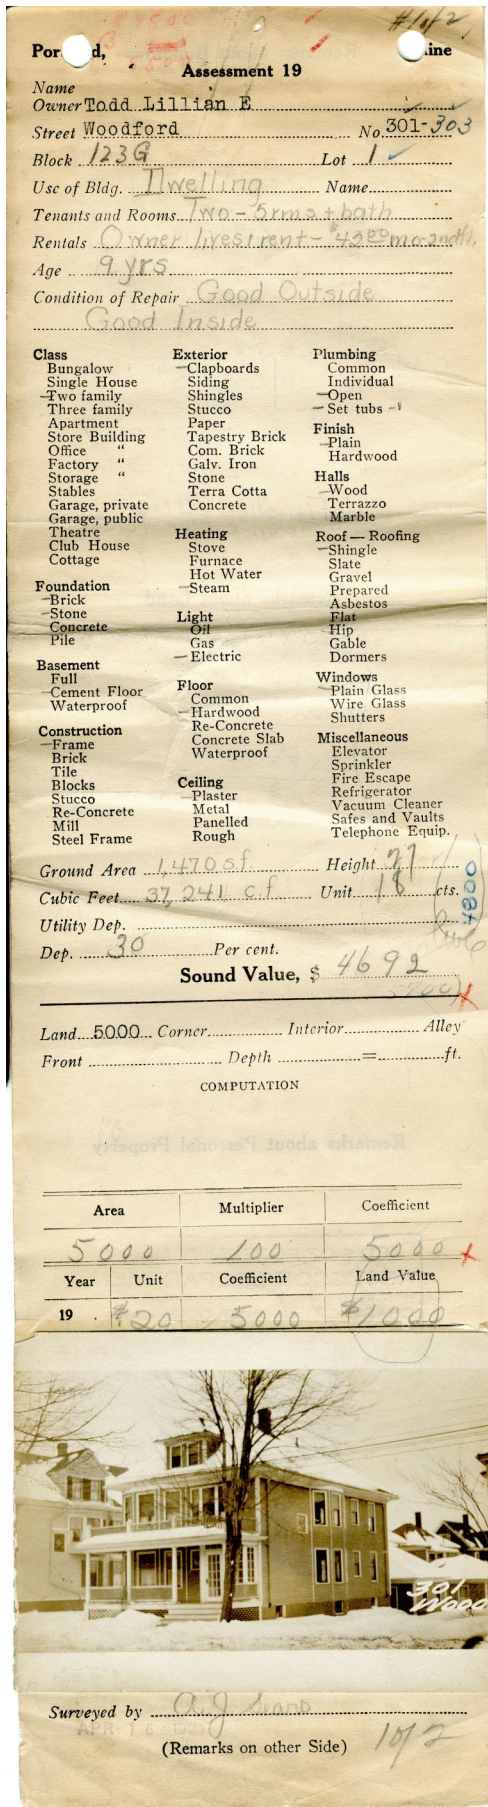 #1 of 2
Portland, Maine
Assessment 19
Name
Owner Todd Lillian E
Street Woodford No. 301-303
Block 123G Lot 1
Use of Bldg. Dwelling Name
Tenants and Rooms Two - 5rms + bath
Rentals Owner lives & rent - $42.00 mo - 2nd fl.
Age 9 yrs
Condition of Repair Good Outside
Good Inside
Class
Bungalow
Single House
Two family
Three family
Apartment
Store Building
Office "
Factory "
Storage "
Stables
Garage, private
Garage, public
Theatre
Club House
Cottage
Foundation
Brick
Stone
Concrete
Pile
Basement
Full
Cement Floor
Waterproof
Construction
Frame
Brick
Tile
Blocks
Stucco
Re-Concrete
Mill
Steel Frame
Exterior
Clapboards
Siding
Shingles
Stucco
Paper
Tapestry Brick
Com. Brick
Galv. Iron
Stone
Terra Cotta
Concrete
Heating
Stove
Furnace
Hot Water
Steam
Light
Oil
Gas
Electric
Floor
Common
Hardwood
Re-Concrete
Concrete Slab
Waterproof
Ceiling
Plaster
Metal
Panelled
Rough
Plumbing
Common
Individual
Open
Set tubs - 1
Finish
Plain
Hardwood
Halls
Wood
Terrazzo
Marble
Roof — Roofing
Shingle
Slate
Gravel
Prepared
Asbestos
Flat
Hip
Gable
Dormers
Windows
Plain Glass
Wire Glass
Shutters
Miscellaneous
Elevator
Sprinkler
Fire Escape
Refrigerator
Vacuum Cleaner
Safes and Vaults
Telephone Equip.
Ground Area 1,470 s.f. Height 27
Cubic Feet 37,241 c.f. Unit 18 cts.
4800
Utility Dep.
Dep. 30 Per cent.
Sound Value, $ 4692
Land 5000 Corner Interior Alley
Front Depth = ft.
COMPUTATION
Area Multiplier Coefficient
5000 100 5000 x
Year Unit Coefficient Land Value
19 . $20 5000 $1000
301
Wood
Surveyed by A. J. Sears
APR 16
(Remarks on other Side) 1 of 2